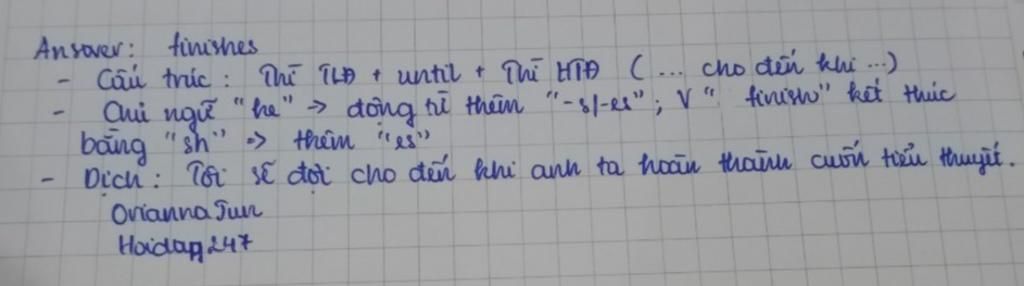 Answer: finishes
- Cấu trúc: Thì TLĐ + until + Thì HTĐ (... cho đến khi ...)
- Chủ ngữ "he" => động từ thêm "-s/-es"; V "finish" kết thúc
bằng "sh" => thêm "es"
- Dịch: Tôi sẽ đợi cho đến khi anh ta hoàn thành cuốn tiểu thuyết.
OriannaJun
Hoidap247